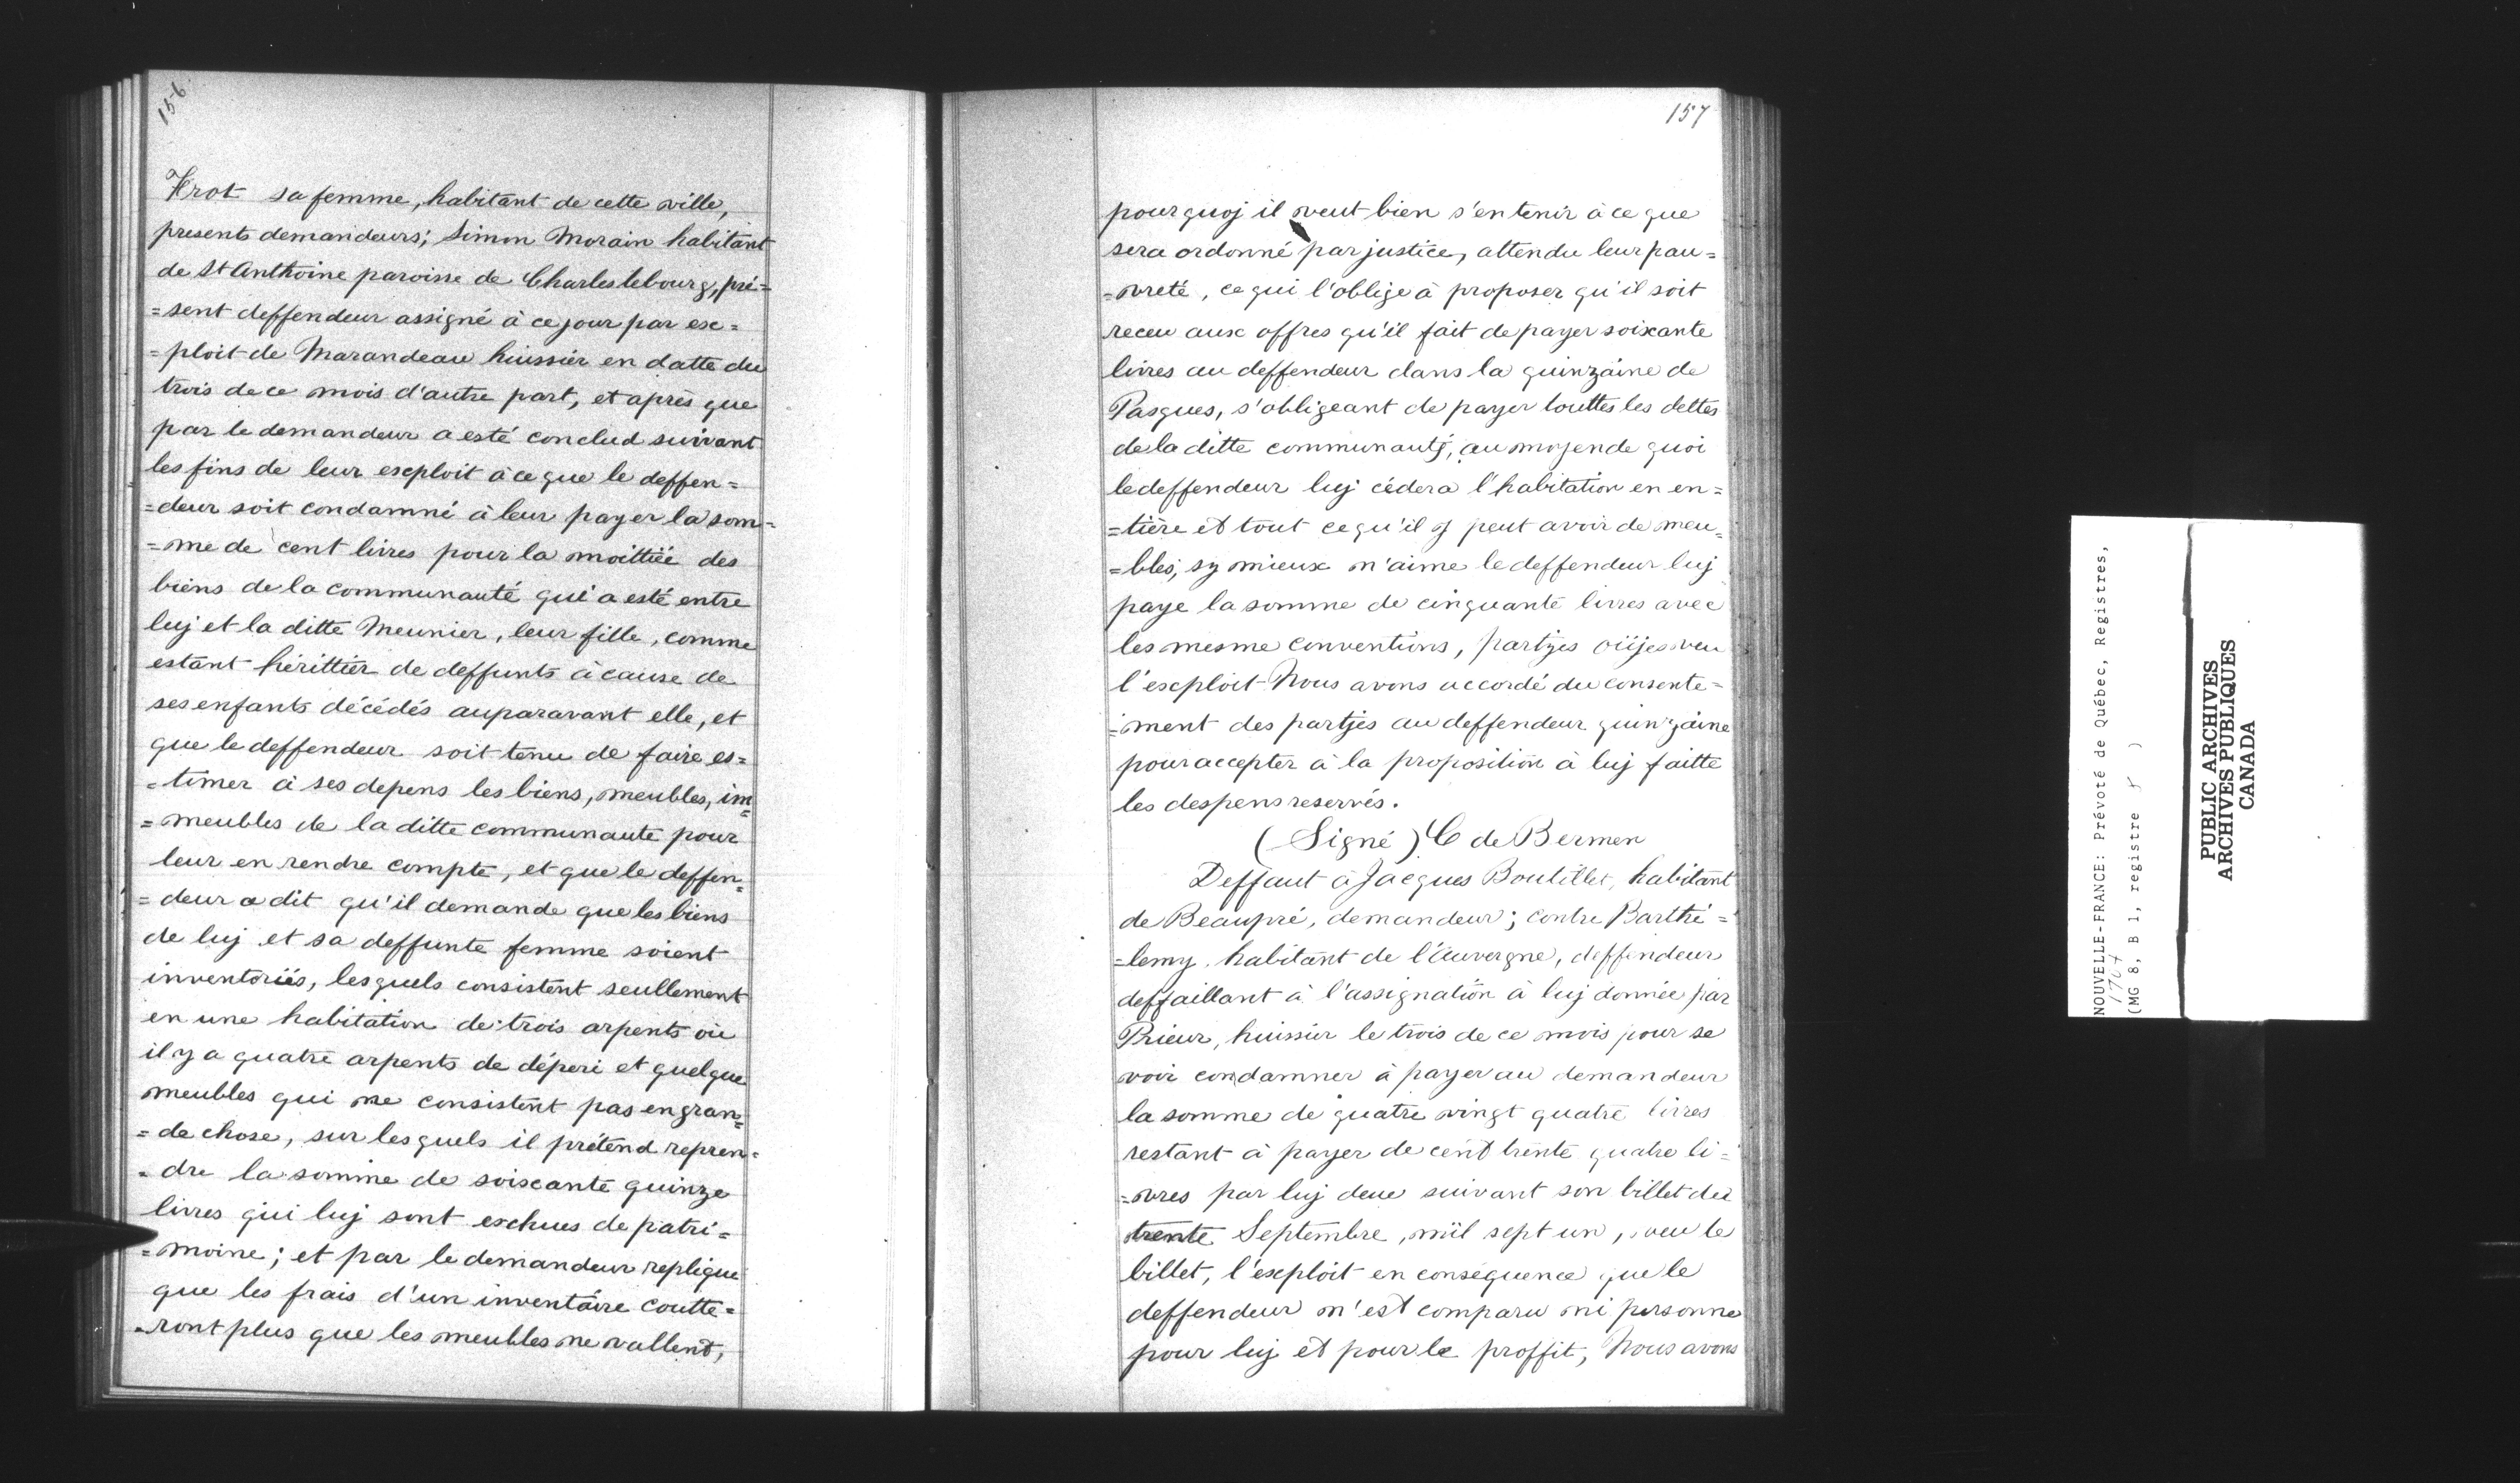 156
Frot sa femme, habitant de cette ville,
presents demandeurs; Simon Morain habitant
de St Anthoine paroisse de Charlesbourg, pré=
=sent deffendeur assigné à ce jour par ex=
=ploit de Marandeau huissier en datte du
trois de ce mois d'autre part, et après que
par le demandeur a esté conclud suivant
les fins de leur exploit à ce que le deffen=
=deur soit condamné à leur payer la som=
=me de cent livres pour la moittiée des
biens de la communauté qui a esté entre
luj et la ditte Meunier, leur fille, comme
estant hérittier de deffunts à cause de
ses enfants décédés auparavant elle, et
que le deffendeur soit tenu de faire es=
=timer à ses depens les biens, meubles, im=
=meubles de la ditte communauté pour
leur en rendre compte, et que le deffen=
=deur a dit qu'il demande que les biens
de luj et sa deffunte femme soient
inventoriés, lesquels consistent seullement
en une habitation de trois arpents où
il y a quatre arpents de déperi et quelque
meubles qui ne consistent pas en gran=
=de chose, sur lesquels il prétend repren=
=dre la somme de soixante quinze
livres qui luj sont eschues de patri=
=moine; et par le demandeur replique
que les frais d'un inventaire coutte=
=ront plus que les meubles ne vallent,
157
pourquoj il veut bien s'en tenir à ce que
sera ordonné par justice, attendu leur pau=
=vreté, ce qui l'oblige à proposer qu'il soit
receu aux offres qu'il fait de payer soixante
livres au deffendeur dans la quinzaine de
Pasques, s'obligeant de payer touttes les dettes
de la ditte communauté, au moyen de quoi
le deffendeur luj cédera l'habitation en en=
=tière et tout ce qu'il y peut avoir de meu=
=bles, sy mieux n'aime le deffendeur luj
paye la somme de cinquante livres avec
les mesme conventions, partjes oüjes veu
l'exploit Nous avons accordé du consente=
=ment des partjes au deffendeur quinzaine
pour accepter à la proposition à luj faitte
les despens reservés.
(Signé) C de Bermen
Deffaut à Jacques Boutillet, habitant
de Beaupré, demandeur; contre Barthé=
=lemy habitant de l'Auvergne, deffendeur
deffaillant à l'assignation à luj donnée par
Prieur, huissier le trois de ce mois pour se
voir condamner à payer au demandeur
la somme de quatre vingt quatre livres
restant à payer de cent trente quatre li=
=vres par luj deue suivant son billet du
trente Septembre, mil sept un, veu le
billet, l'exploit en conséquence que le
deffendeur n'est comparu ni personne
pour luj et pour le proffit, Nous avons
NOUVELLE-FRANCE: Prévoté de Québec, Registres,
1707
(MG 8, B 1, registre 5 )
PUBLIC ARCHIVES
ARCHIVES PUBLIQUES
CANADA